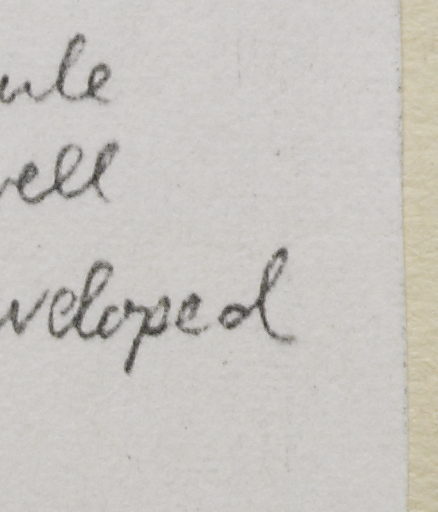 ule
well
veloped